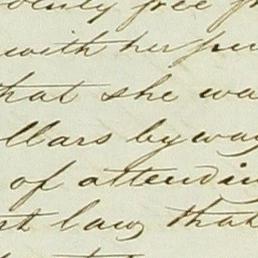 free
with her
that she wa
llars by way
of attendin
law, that